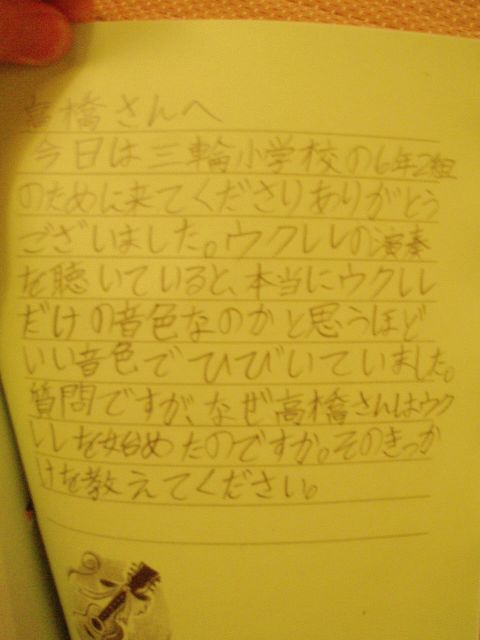 高橋さんへ
今日は三輪小学校の6年2組
のために来てくださりありがとう
ございました。ウクレレの演奏
を聴いていると、本当にウクレレ
だけの音色なのかと思うほど
いい音色でひびいていました。
質問ですが、なぜ高橋さんはウク
レレを始めたのですか。そのきっか
けを教えてください。